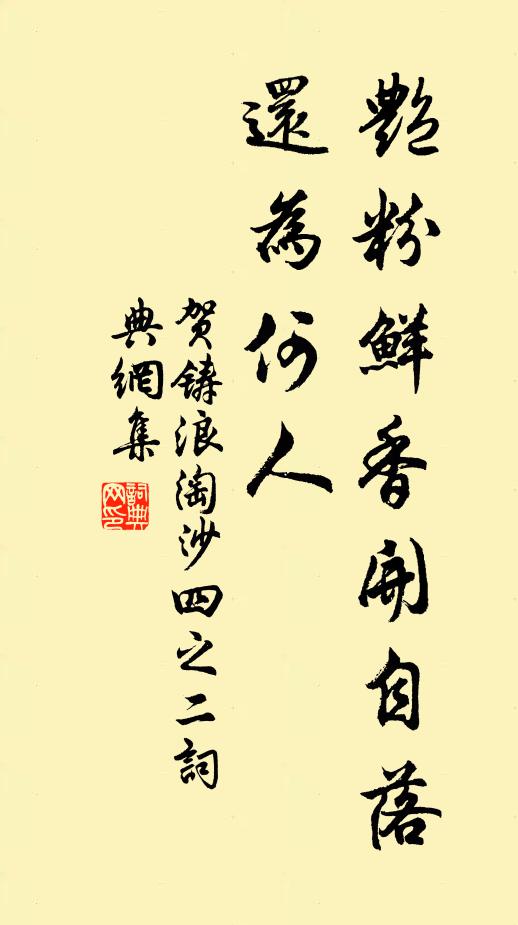 艷粉鮮香開自落
還為何人
賀鑄浪淘沙四之二詞
典網集
詞典網印